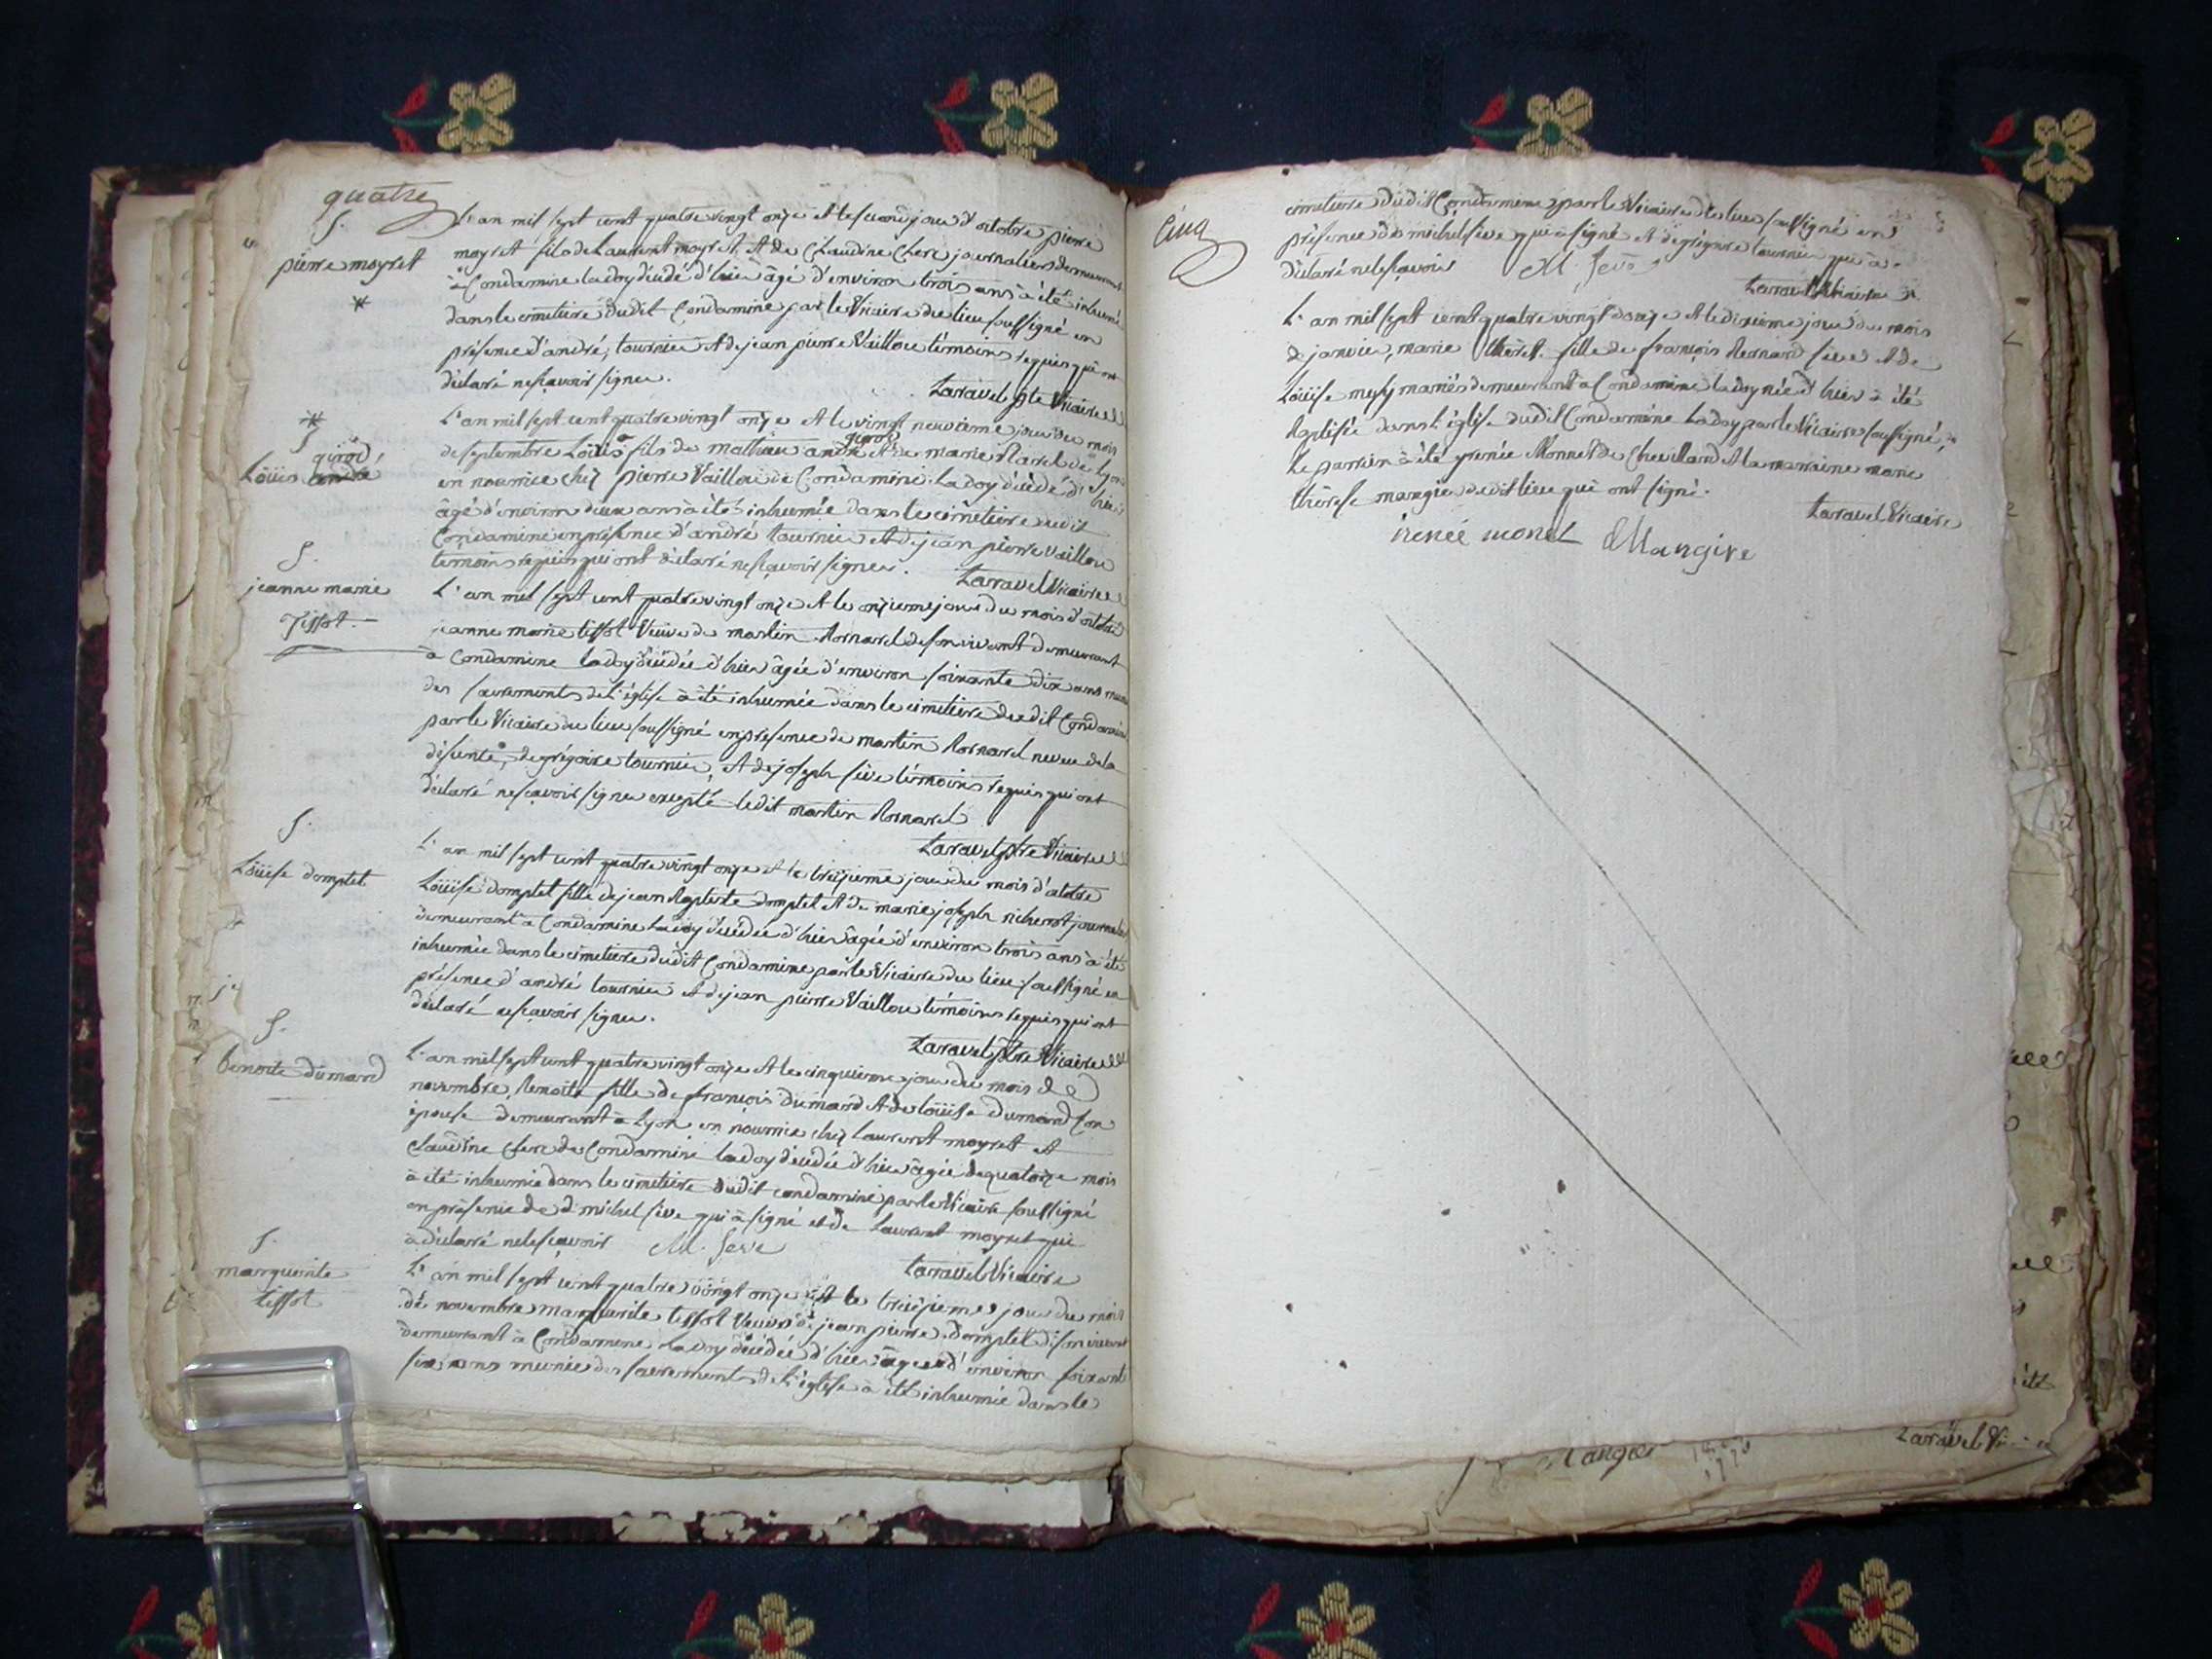 quatre
S.
pierre moyret
*
L'an mil sept cent quatre vingt onze et le second jour d'octobre pierre
moyret fils de Laurent moyret et de Claudine Clerc journaliers demeurant
à Condamine ladoy décédé d'hier âgé d'environ trois ans à été inhumé
dans le cimetiere dudit Condamine par le Vicaire du lieu soussigné en
présence d'andré tournier et de jean pierre Vaillou témoins requis qui ont
déclaré ne sçavoir signer.
Laravel ptre Vicaire
*
S
girod
Loüis andré
L'an mil sept cent quatre vingt onze et le vingt neuvième jour du mois
girod
de septembre Loüis fils de mathieu andré et de marie de Lyon
en nourrice chez pierre Vaillou de Condamine Ladoy décédé d'hier
âgé d'environ deux ans à été inhumée dans le cimetiere dudit
Condamine en présence d'andré tournier et de jean pierre vaillou
témoins requis qui ont déclaré ne sçavoir signer.
Laravel Vicaire
S.
jeanne marie
Tissot.
L'an mil sept cent quatre vingt onze et le onzieme jour du mois d'octobre
jeanne marie tissot Veuve de martin de son vivant demeurant
à Condamine ladoy décédée d'hier âgée d'environ soixante dix ans munie
des sacrements de l'église à été inhumée dans le cimetiere dudit Condamine
par le Vicaire du lieu soussigné en présence de martin neveu de la
défunte, de grégoire tournier, et de joseph sève témoins requis qui ont
déclaré ne sçavoir signer excepté ledit martin
Laravel ptre Vicaire
S.
Loüise domptet
L'an mil sept cent quatre vingt onze et le treizieme jour du mois d'octobre
Loüise domptet fille de jean baptiste domptet et de marie joseph journaliers
demeurant à Condamine Ladoy décédée d'hier âgée d'environ trois ans à été
inhumée dans le cimetiere dudit Condamine par le Vicaire du lieu soussigné en
présence d'andré tournier et de jean pierre Vaillou témoins requis qui ont
déclaré ne sçavoir signer.
Laravel ptre Vicaire
S.
benoite dumand
L'an mil sept cent quatre vingt onze et le cinquieme jour du mois de
novembre, benoite fille de françois dumand et de loüise dumand son
épouse demeurant à Lyon en nourrice chez laurent moyret et
Claudine Clerc de Condamine ladoy décédée d'hier âgée de quatorze mois
à été inhumée dans le cimetiere dudit condamine par le Vicaire soussigné
en présence de michel sève qui à signé et de Laurent moyret qui
à déclaré ne le sçavoir M. Seve
Laravel Vicaire
S.
marguerite
tissot
L'an mil sept cent quatre vingt onze et le treizieme jour du mois
de novembre marguerite tissot Veuve de jean pierre domptet de son vivant
demeurant à Condamine Ladoy décédée d'hier âgée d'environ soixante
six ans munie des sacrements de l'église à été inhumée dans le
Cinq
cimetiere dudit Condamine par le Vicaire du lieu soussigné en
présence de michel sève qui à signé et de grégoire tournier qui à
déclaré ne le sçavoir M. Seve
Laravel Vicaire
L'an mil sept cent quatre vingt douze et le dixieme jour du mois
de janvier, marie thérèse fille de françois sève et de
Loüise mariés demeurant à Condamine ladoy née d'hier à été
baptisée dans l'église dudit Condamine Ladoy par le Vicaire soussigné,
le parrein à été irenée Monnet de Chevillard et la marraine marie
thérèse mangier dudit lieu qui ont signé.
Laravel Vicaire
irenée monet Mangire
Laravel Vi